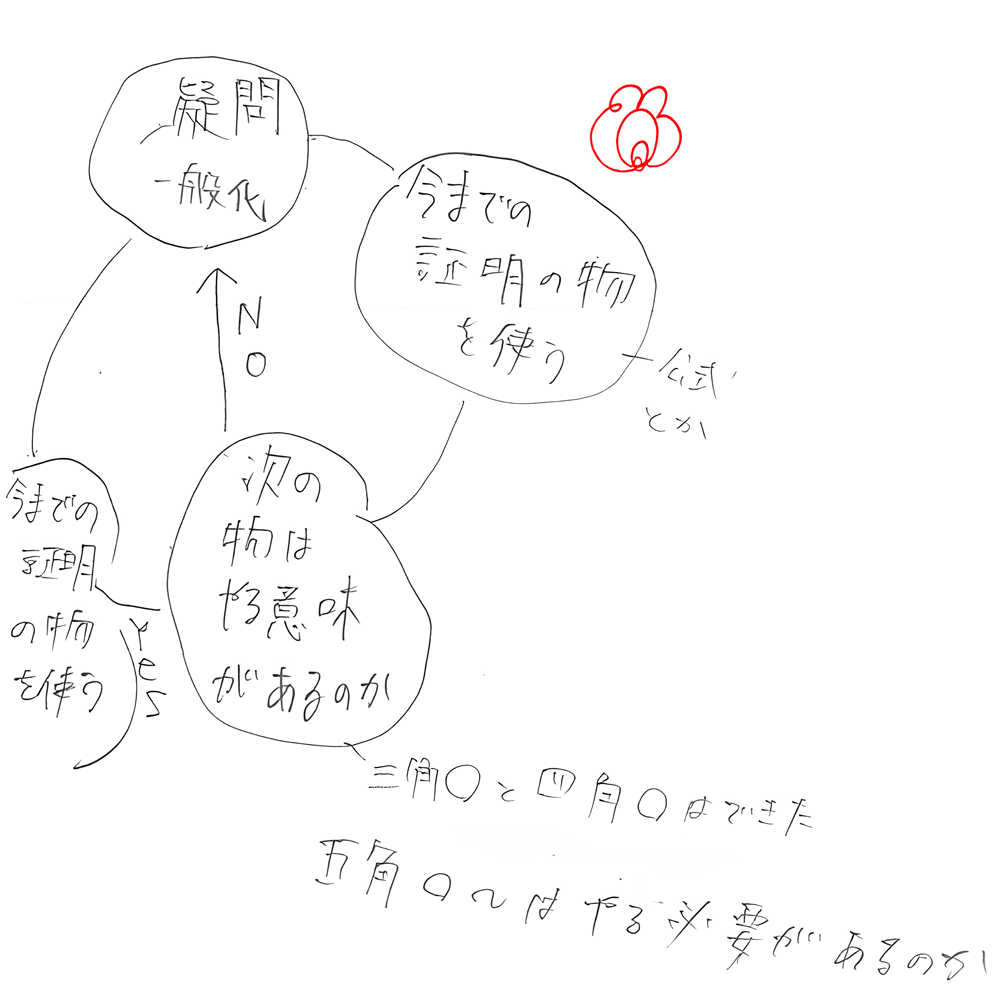 疑問
一般化
今までの
証明の物
を使う
公式
とか
NO
次の
物は
やる意味
があるのか
今までの
証明
の物
を使う
Yes
三角〇と四角〇はできた
五角〇~はやる必要があるのか